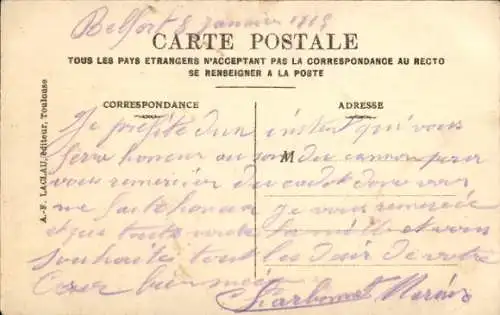 Belfort 8 Janvier 1915
CARTE POSTALE
TOUS LES PAYS ETRANGERS N'ACCEPTANT PAS LA CORRESPONDANCE AU RECTO
SE RENSEIGNER A LA POSTE
CORRESPONDANCE
ADRESSE
A.-F. LACLAU, éditeur, Toulouse
M
Je profite d'un instant qui vous
fera honneur au son du cannon pour
vous remercier du cadot donc vous
me faite honneur je vous remercie
et que toute votre famille et vous
souhaites tout les désir de votre
Cœur bien